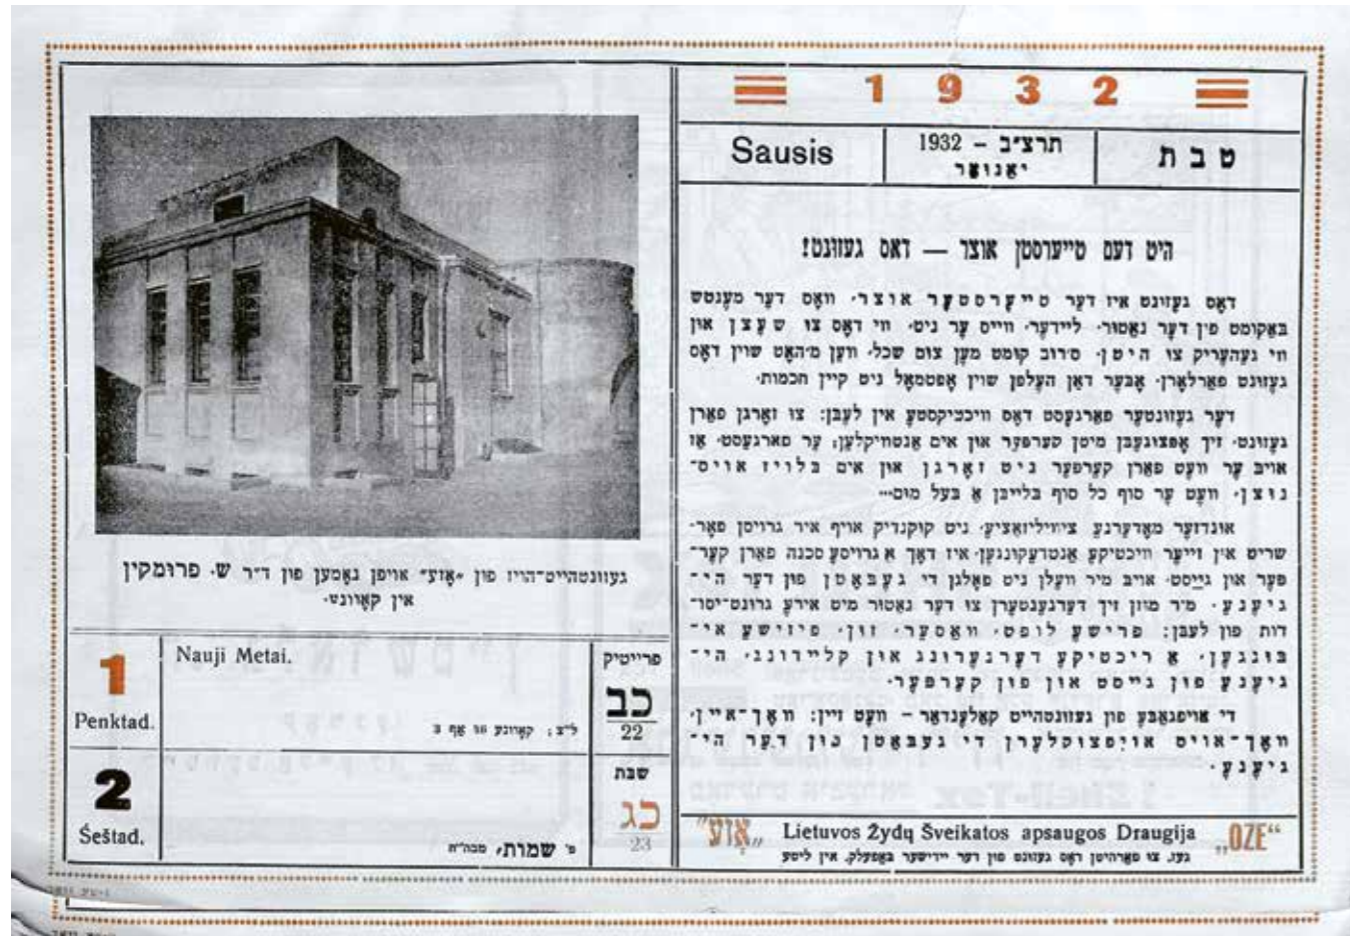 1932
Sausis
תרצ״ב – 1932
יאַנואַר
טבת
היט דעם טייערסטן אוצר — דאס געזונט!
דאָס געזונט איז דער טייערסטער אוצר, וואָס דער מענטש
באַקומט פון דער נאַטור. ליידער, ווייס ער ניט, ווי דאָס צו שעצן און
ווי געהעריק צו היטן. ס׳רוב קומט מען צום שכל, ווען מ׳האָט שוין דאָס
געזונט פאַרלאָרן. אָבער דאַן העלפן שוין אָפטמאָל ניט קיין חכמות.
דער געזונטער פאַרגעסט דאָס וויכטיקסטע אין לעבן: צו זאָרגן פאַרן
געזונט, זיך אָפּצוגעבן מיטן קערפּער און אים אַנטוויקלען; ער פאַרגעסט, אַז
אויב ער וועט פאַרן קערפּער ניט זאָרגן און אים בלויז אויס־
נוצן, וועט ער סוף כל סוף בלייבן אַ בעל מום...
אונדזער מאָדערנע ציוויליזאַציע, ניט קוקנדיק אויף איר גרויסן פאָר־
שריט אין זייער וויכטיקע אַנטדעקונגען, איז דאָך אַ גרויסע סכנה פאַרן קער־
פּער און גייַסט, אויב מיר וועלן ניט פאָלגן די געבאָטן פון דער הי־
גיענע. מיר מוזן זיך דערנענטערן צו דער נאַטור מיט אירע גרונט־יסו־
דות פון לעבן: פרישע לופט, וואַסער, זון, פיזישע אי־
בונגען, אַ ריכטיקע דערנערונג און קליידונג, הי־
גיענע פון גייסט און פון קערפּער.
די אויפגאַבע פון געזונטהייט קאַלענדאַר – וועט זיין: וואָך־איין,
וואָך־אויס אויפצוקלערן די געבאָטן פון דער הי־
גיענע.
„אָזע”
Lietuvos Žydų Sveikatos apsaugos Draugija
„OZE“
געז. צו פאַרהיטן דאָס געזונט פון דער יידישער באַפעלק. אין ליטע
געזונטהייט־הויז פון „אָזע” אויפן נאָמען פון ד״ר ש. פרומקין
אין קאָוונע.
1
Penktad.
Nauji Metai.
ל״צ; קאָוונע
פרייטיק
כב
22
2
Šeštad.
פ׳ שמות, מבה״ח
שבת
כג
23